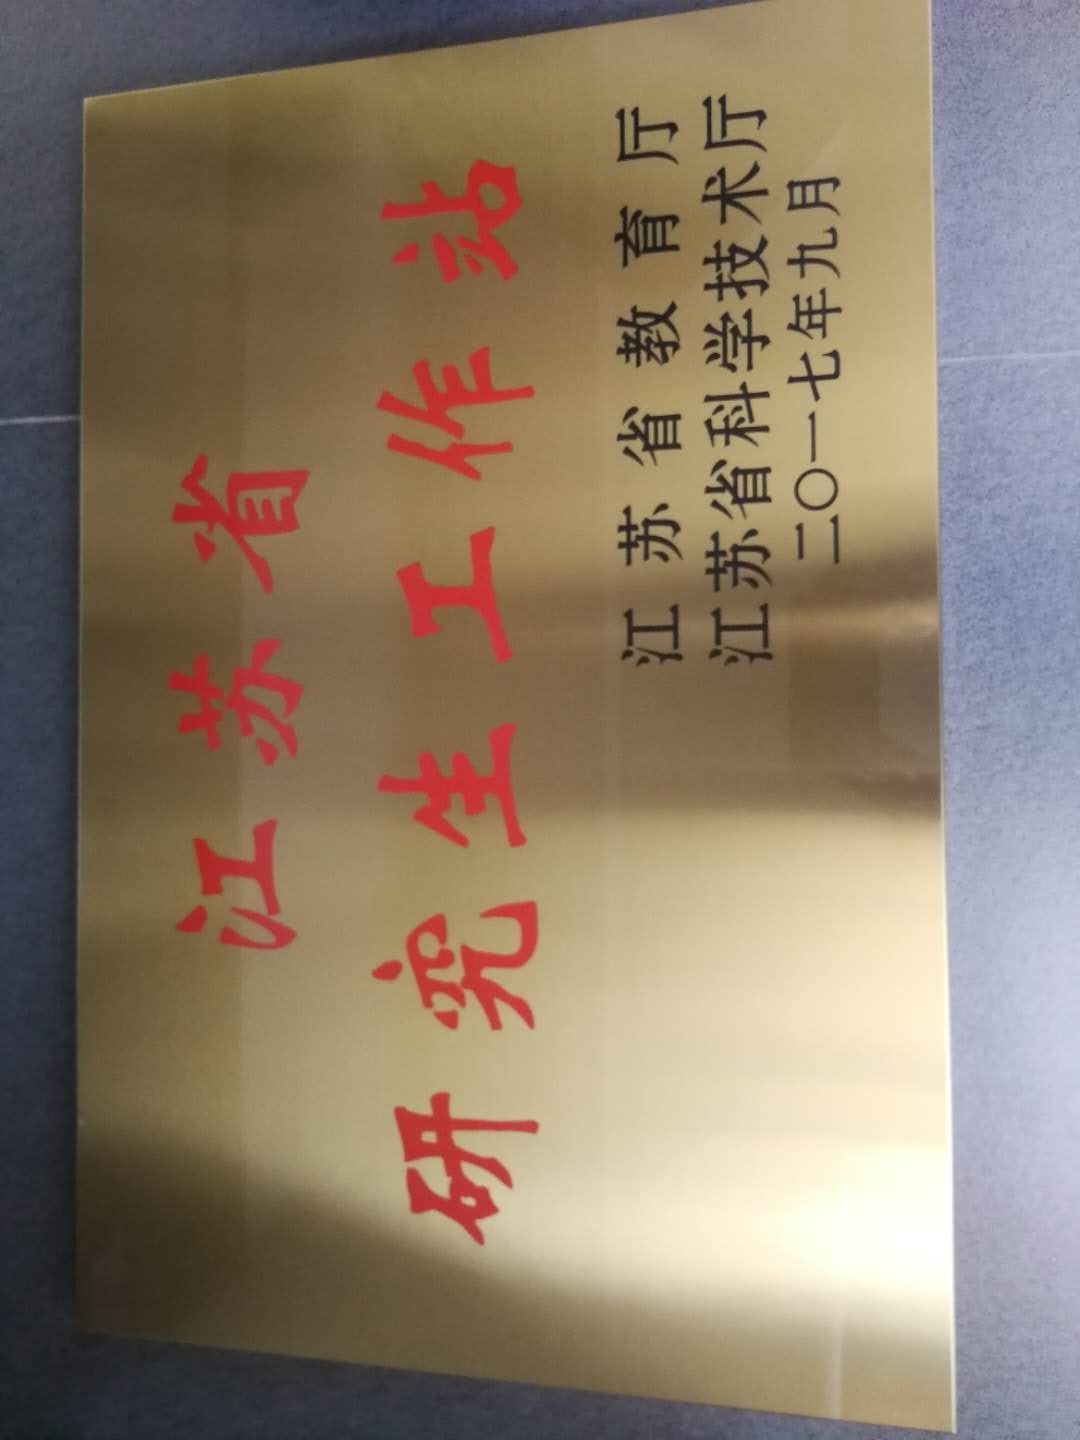 江苏省
研究生工作站
江苏省教育厅
江苏省科学技术厅
二〇一七年九月